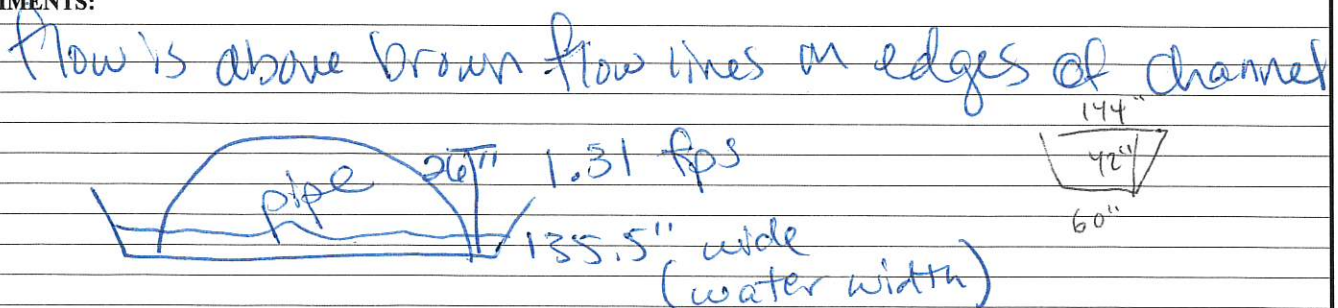 MMENTS:
flow is above brown flow lines on edges of channel
144"
pipe 26" 1.31 fps
42"
135.5" wide
60"
(water width)